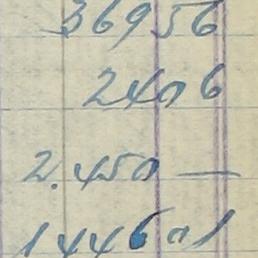 36956
2406
2.450 —
144601